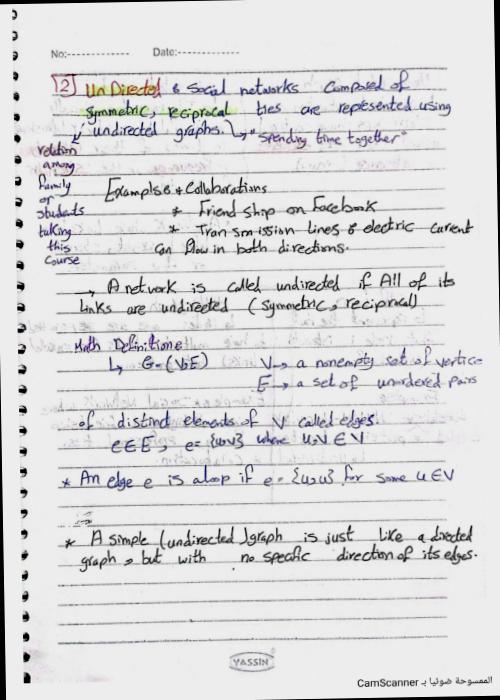 No:------------- Date:-------------
[2] UnDirected : Social networks Composed of
symmetric, reciprocal ties are represented using
undirected graphs. → "spending time together"
relation
among
family
or
students
taking
this
Course
Examples : * Collaborations
* Friend ship on Facebook
* Tran smission Lines : electric current
Can flow in both directions.
→ A network is called undirected if All of its
links are undirected (symmetric, reciprocal)
Math Definition :
↳ G = (V,E) V → a nonempty set of vertice
E → a set of unordered pairs
of distinct elements of V called edges.
e∈E, e={u,v} where u,v ∈ V
* An edge e is a loop if e = {u,u} for some u ∈ V
* A simple (undirected) graph is just like a directed
graph, but with no specific direction of its edges.
YASSIN
الممسوحة ضوئيا بـ CamScanner